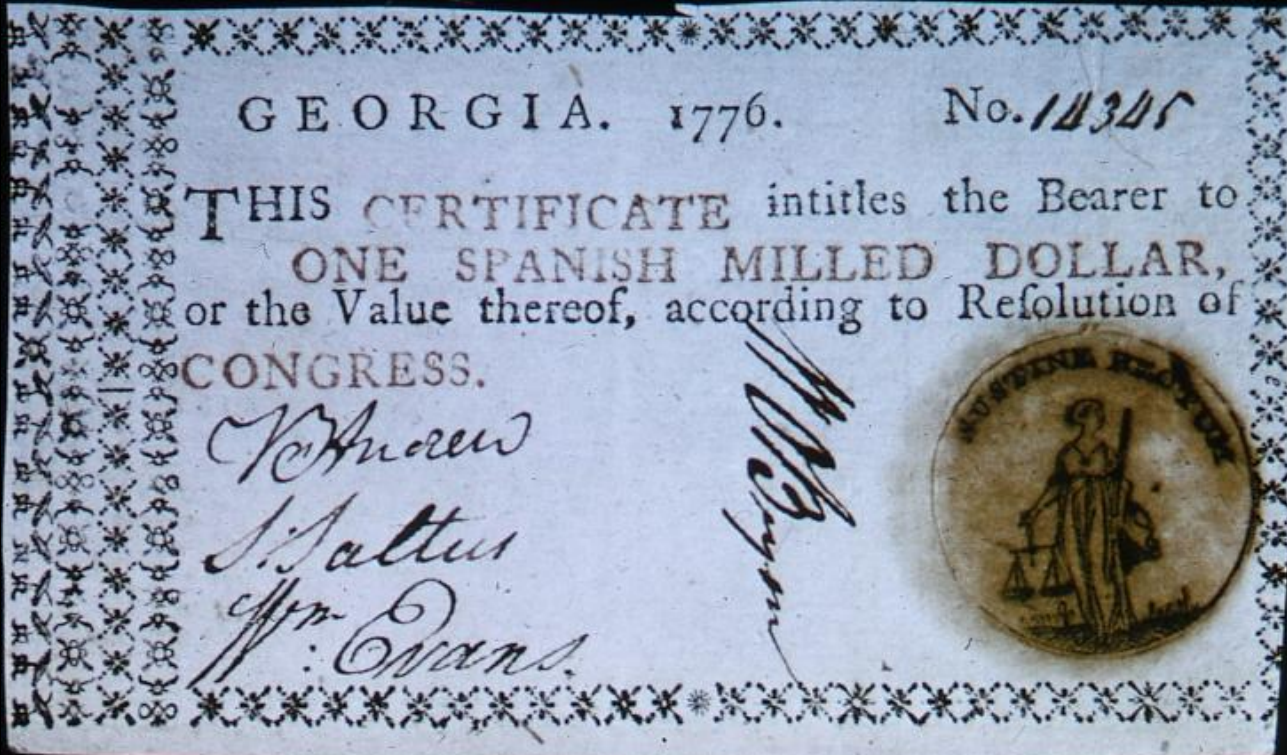 GEORGIA. 1776. No. 14345
THIS CERTIFICATE intitles the Bearer to
ONE SPANISH MILLED DOLLAR,
or the Value thereof, according to Reſolution of
CONGRESS.
S: Saltus
Wm: Evans.
SUSTINE RECTUM